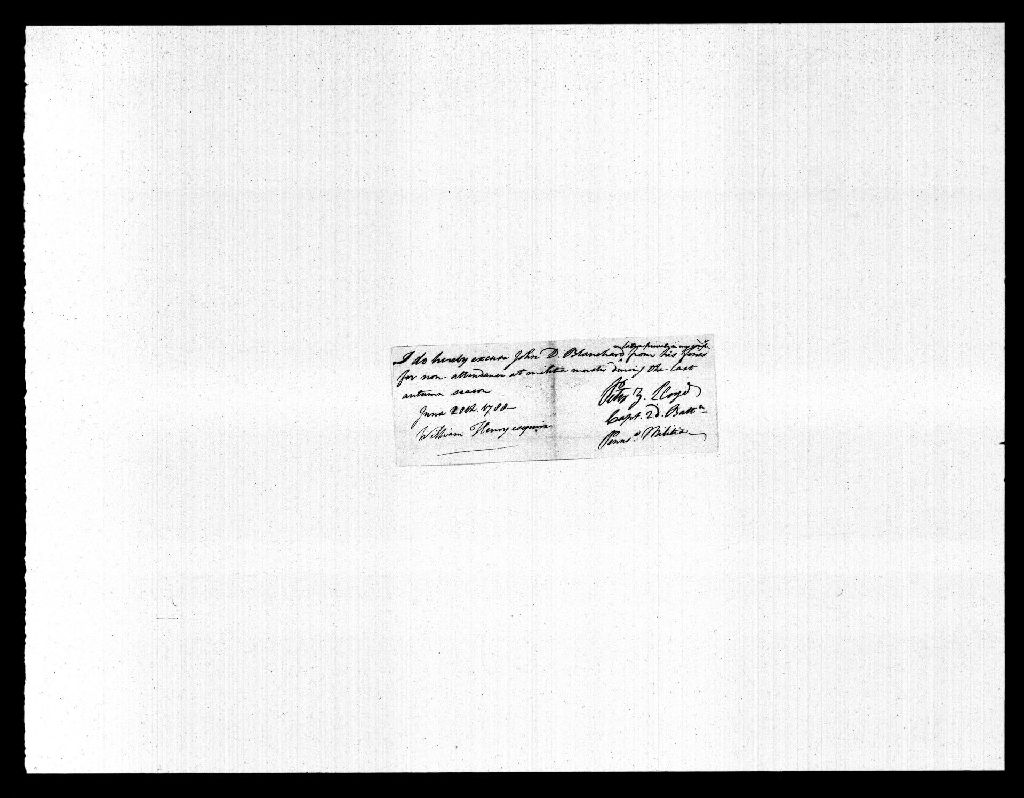 I do hereby excuse John D. Blanchard, from his fines
for non attendance at or the muster during the last
autumn season
June 20th. 1788
William Henry esquire
Peter Z. Lloyd
Capt. 2d. Battn
Penna. Militia